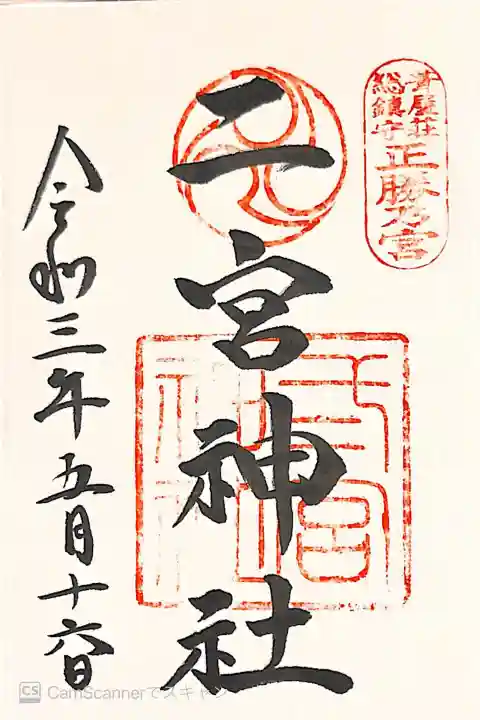 葺屋荘
総鎮守
正勝乃宮
二宮神社
令和三年五月十六日
CS CamScannerでスキャン